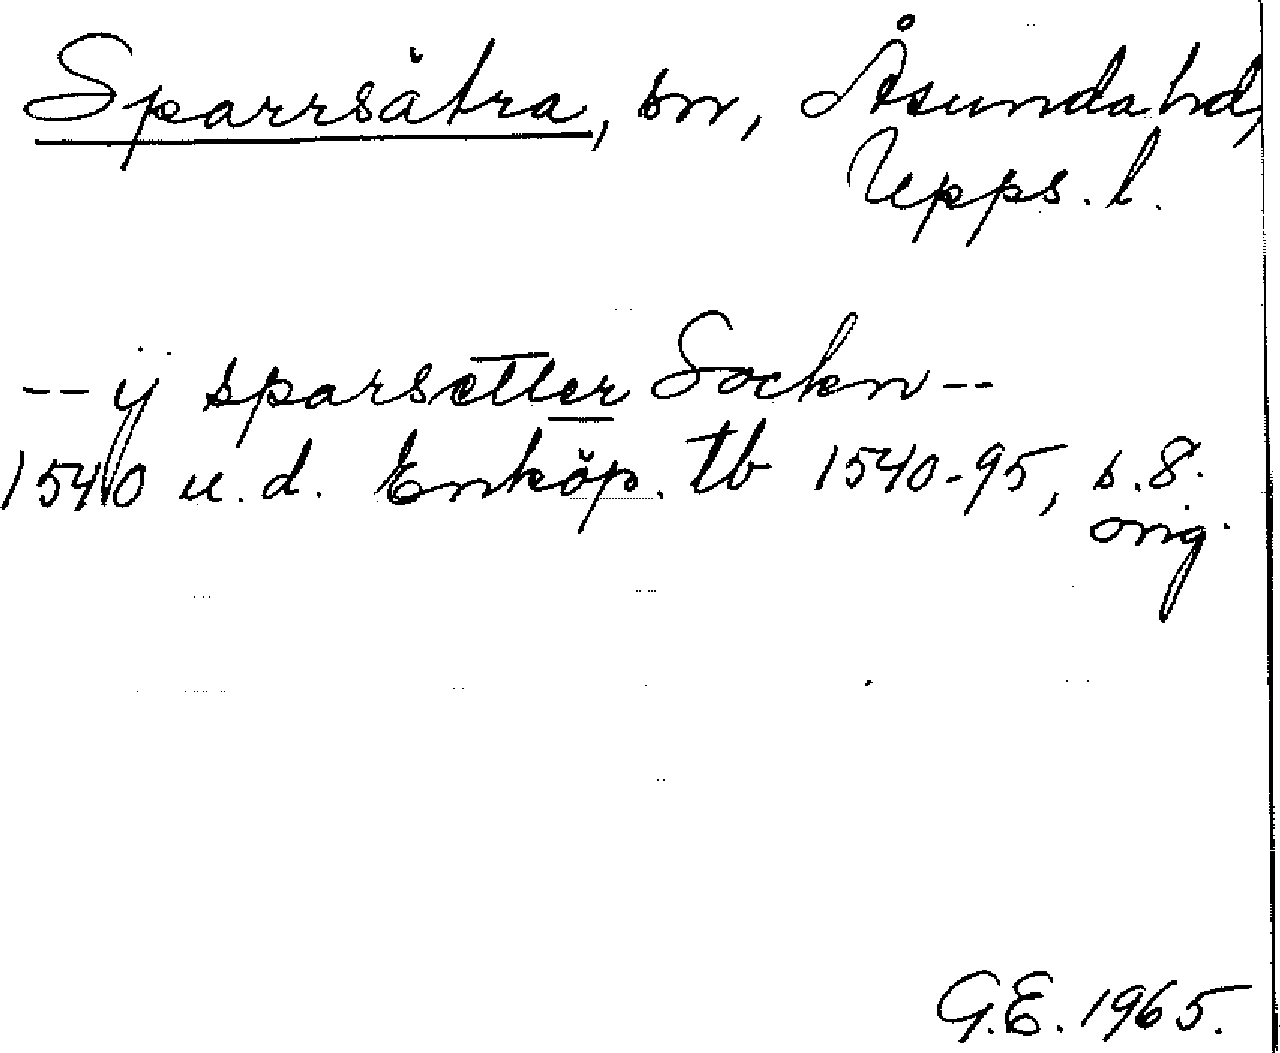 Sparrsätra, sn, Åsunda hd,
Upps. l.
-- ÿ sparsetter Sockn --
1540 u.d. Enköp. tb 1540-95, s.8.
orig.
G.E. 1965.